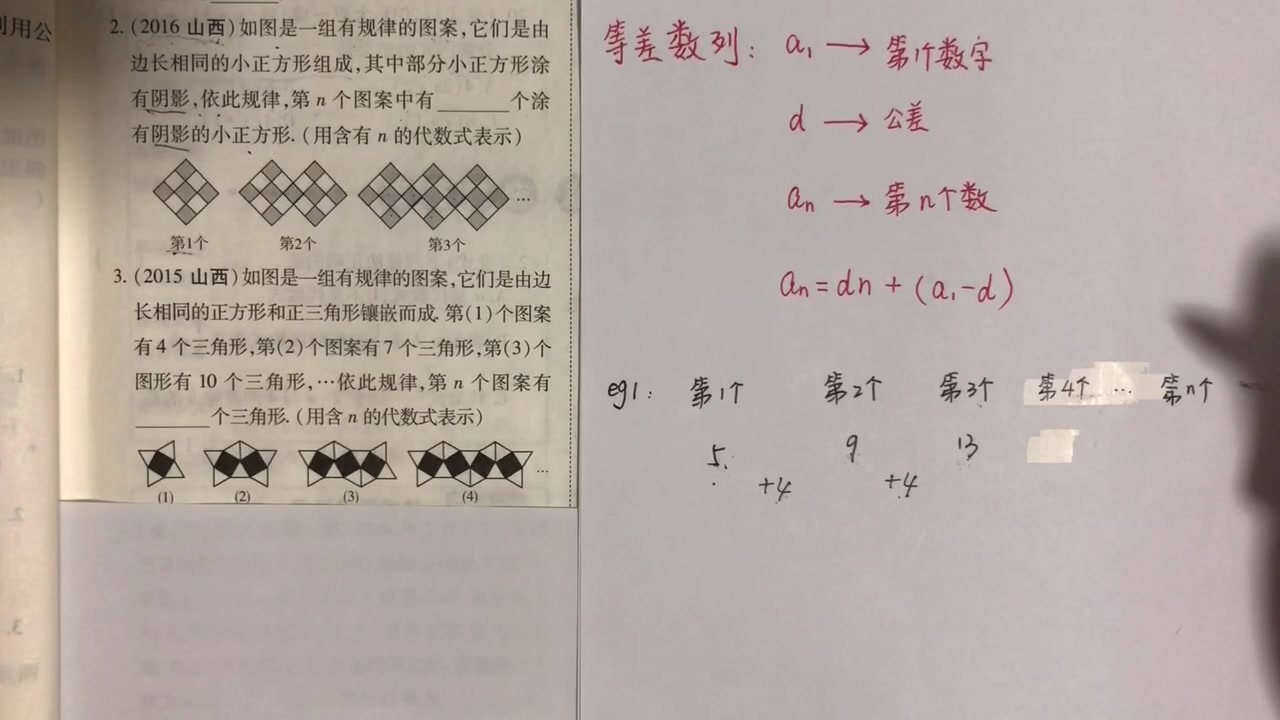 利用公
2. (2016 山西) 如图是一组有规律的图案,它们是由
边长相同的小正方形组成,其中部分小正方形涂
有阴影,依此规律,第 n 个图案中有______个涂
有阴影的小正方形. (用含有 n 的代数式表示)
第1个 第2个 第3个 …
3. (2015 山西) 如图是一组有规律的图案,它们是由边
长相同的正方形和正三角形镶嵌而成. 第(1)个图案
有 4 个三角形,第(2)个图案有 7 个三角形,第(3)个
图形有 10 个三角形,…依此规律,第 n 个图案有
______个三角形. (用含 n 的代数式表示)
(1) (2) (3) (4) …
等差数列: a₁ → 第1个数字
d → 公差
aₙ → 第n个数
aₙ = dn + (a₁-d)
eg1: 第1个 第2个 第3个 第4个 … 第n个
5 9 13
+4 +4